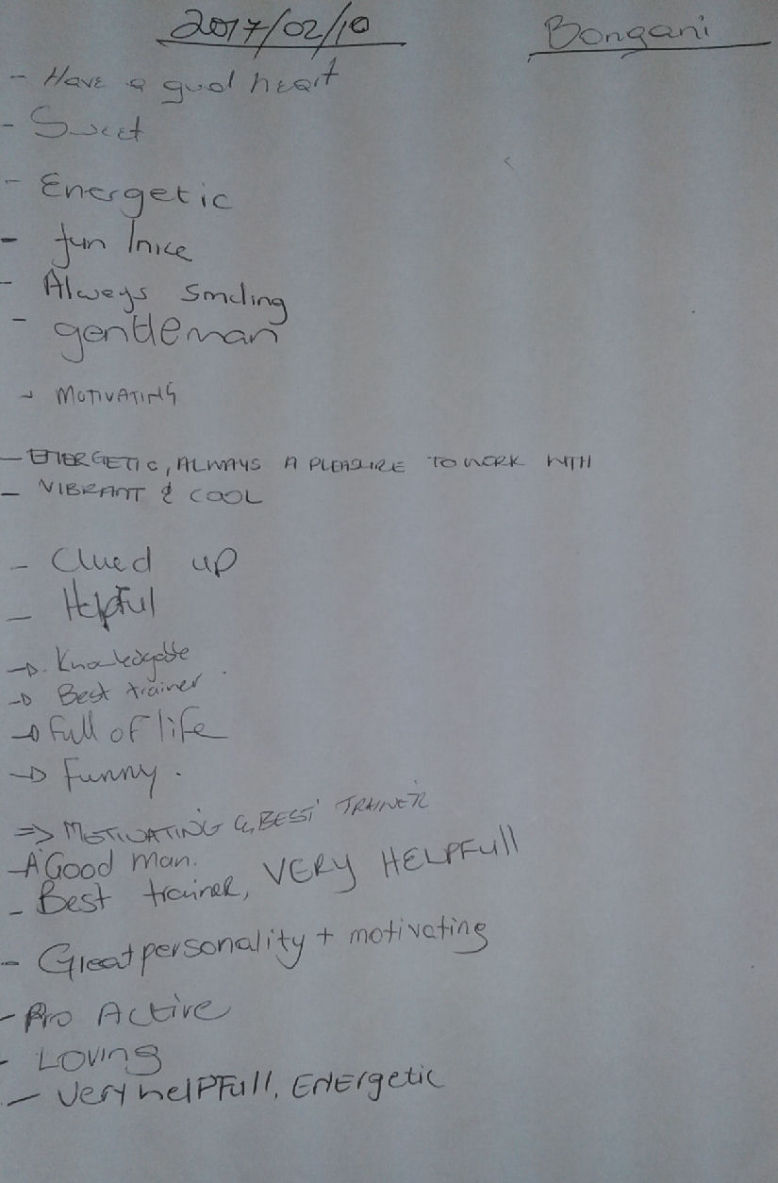 2017/02/10 Bongani
- Have a good heart
- Sweet
- Energetic
- fun / nice
- Always smiling
- gentleman
- MOTIVATING
- ENERGETIC, ALWAYS A PLEASURE TO WORK WITH
- VIBRANT & COOL
- Clued up
- Helpful
→ Knowledgable
→ Best trainer
→ Full of life
→ Funny.
⇒ MOTIVATING & BEST TRAINER
- A Good man.
- Best trainer, VERY HELPFull
- Great personality + motivating
- Pro Active
- Loving
- Very helPFull, EnErgetic